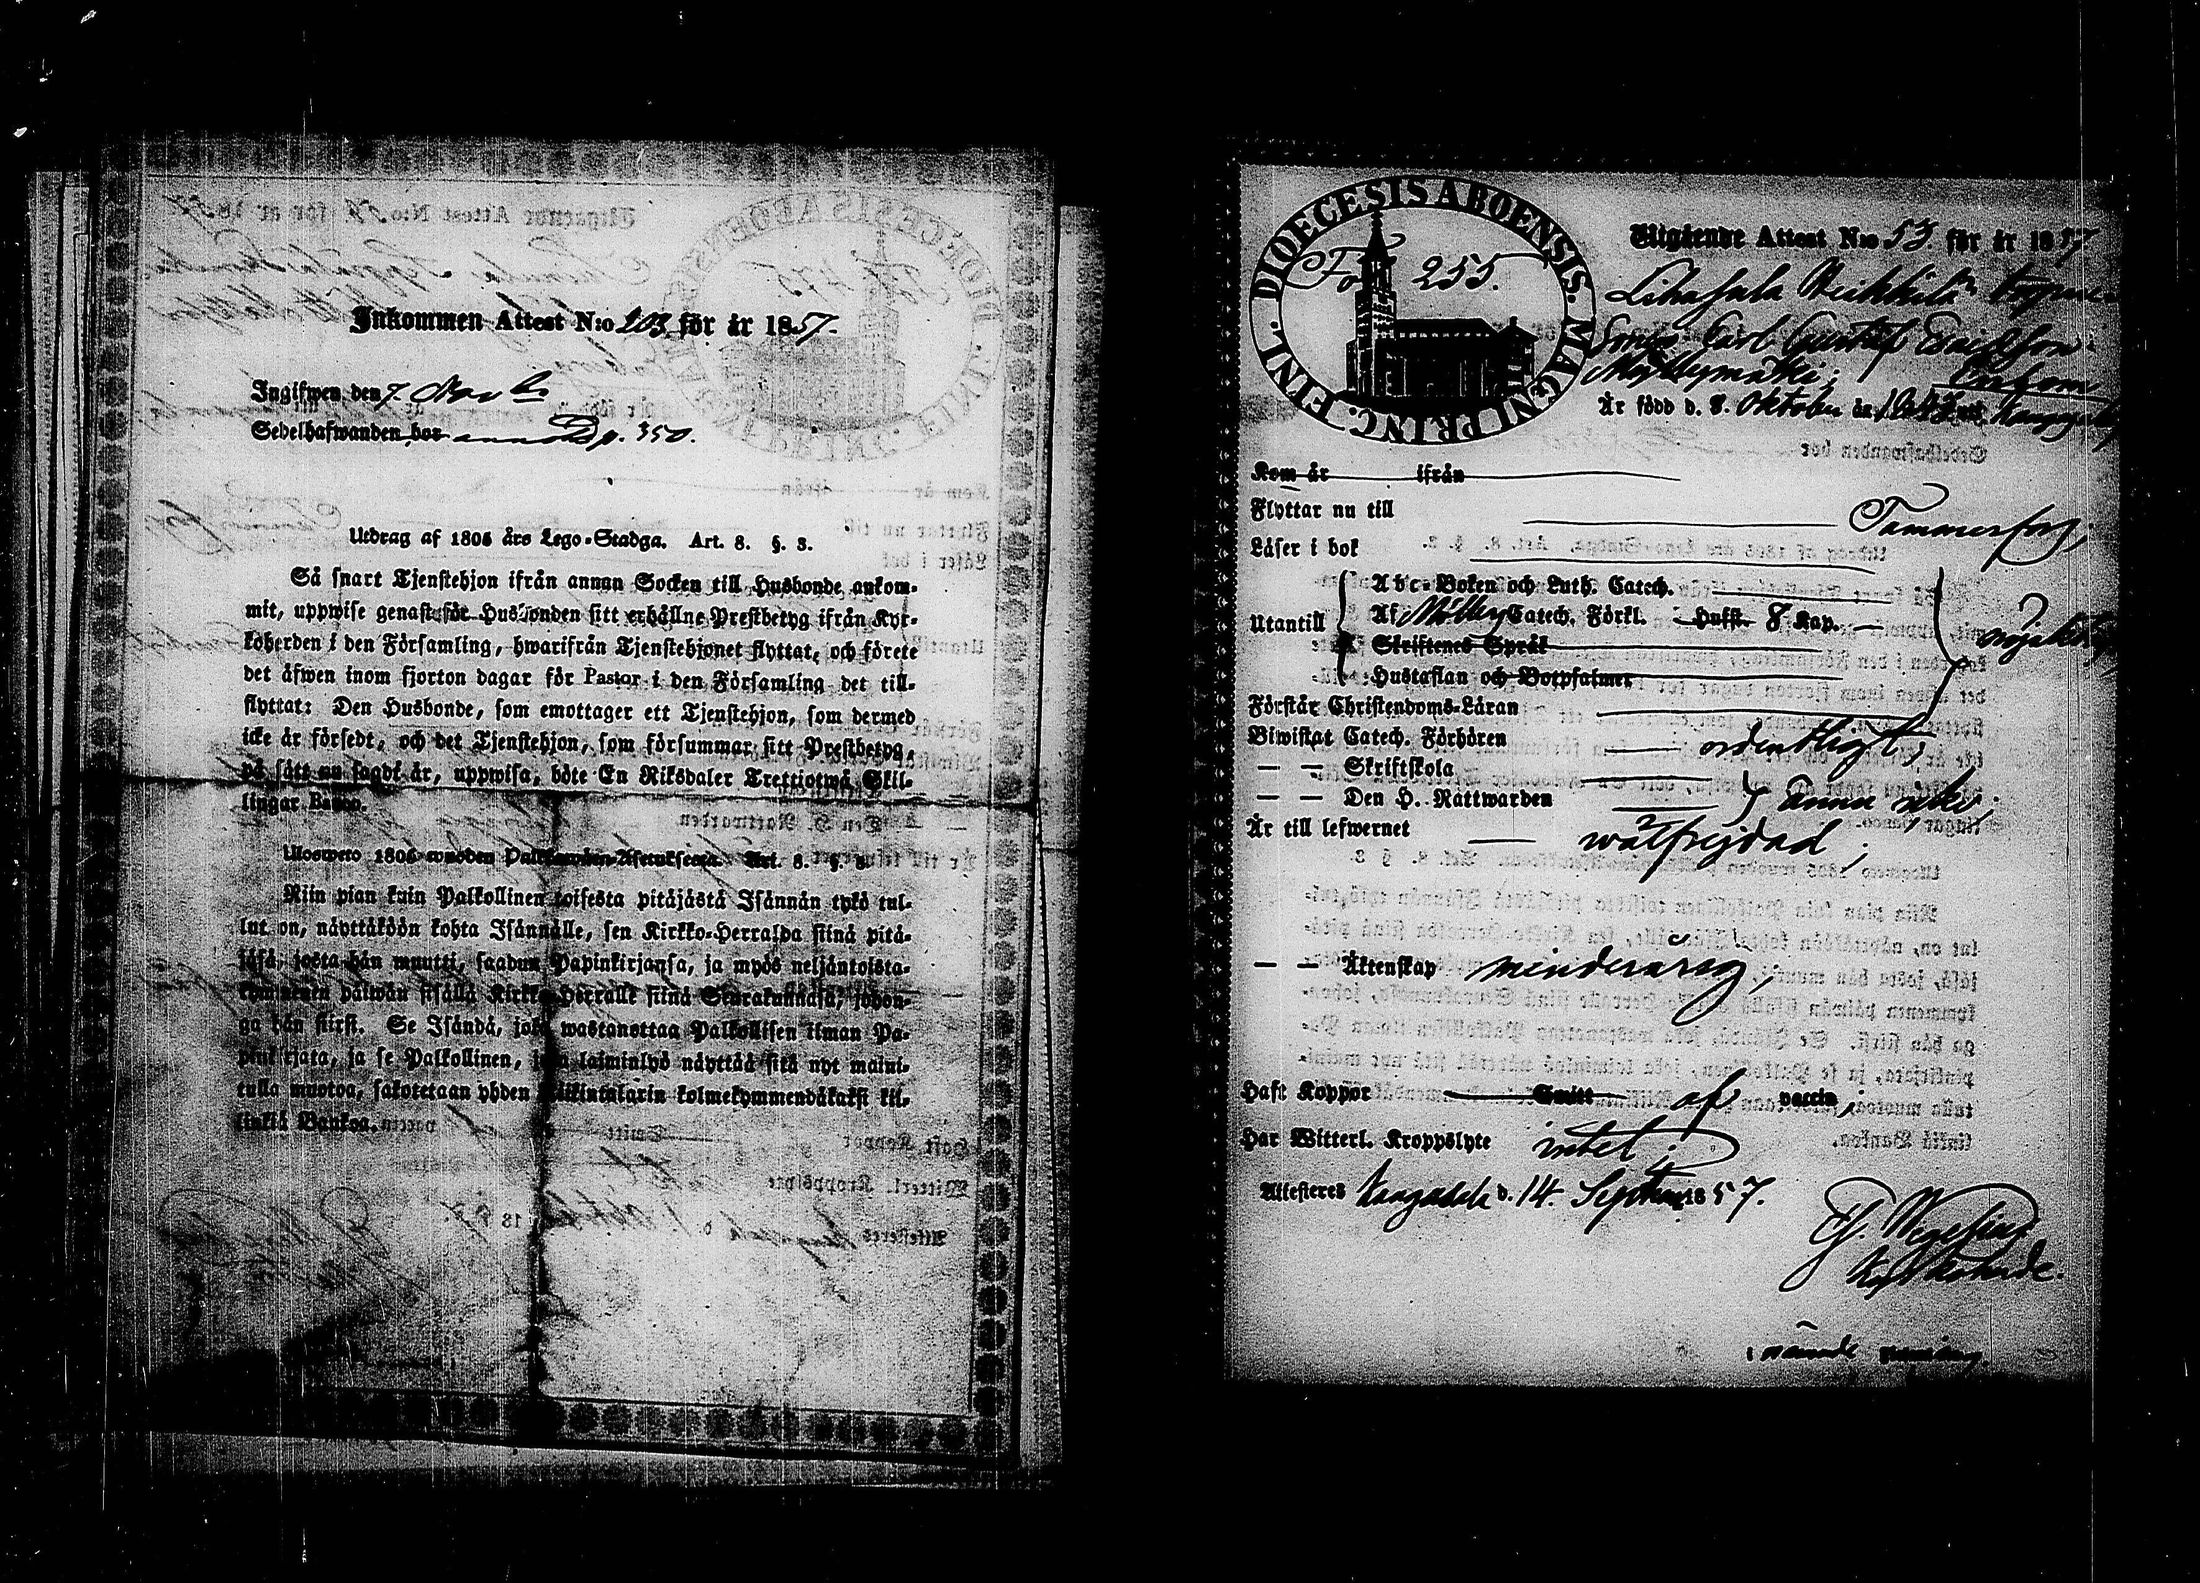 Inkommen Attest N:o 203 för år 1857.
Ingifwen den 7. Nov
Sedelhafwanden bor p. 350.
Utdrag af 1805 års Lego-Stadga. Art. 8. §. 3.
Så snart Tjenstehjon ifrån annan Socken till Husbonde ankom-
mit, uppwise genast för Husbonden sitt erhållne Prestbetyg ifrån Kyr-
koherden i den Församling, hwarifrån Tjenstehjonet flyttat, och förete
det äfwen inom fjorton dagar för Pastor i den Församling det till-
flyttat: Den Husbonde, som emottager ett Tjenstehjon, som dermed
icke är försedt, och det Tjenstehjon, som försummar sitt Prestbetyg,
på sätt nu sagdt är, uppwisa, böte En Riksdaler Trettiotwå Skil-
lingar Banco.
Ulosweto 1805 wuoden Palkkawäen-Asetuksesta. Art. 8. §. 3.
Niin pian kuin Palkollinen toisesta pitäjästä Isännän tykö tul-
lut on, näyttäköön kohta Isännälle, sen Kirkko-Herralda siinä pitä-
jäsä, josta hän muutti, saadun Papinkirjansa, ja myös neljäntoista-
kymmenen päiwän sisällä Kirkko-Herralle siinä Seurakunnasa, johon-
ga hän siirsi. Se Isändä, joka wastanottaa Palkollisen ilman Pa-
pinkirjata, ja se Palkollinen, joka laiminlyö näyttää sitä nyt maini-
tulla muotoa, sakotetaan yhden Riikintalarin kolmekymmendäkaksi kil-
linkiä Bankoa.
DIOECESIS ABOENSIS. MAGNI PRINC. FINL.
Fol 255.
Utgående Attest N:o 53 för år 1857
Lihasula Heikkilä
Sonen Carl Gustaf Ericsson
Myllymäki;
Är född d. 8. Oktober år 1847 i Kangasala
Kom år ifrån
Flyttar nu till Tammerfors;
Läser i bok
Utantill Abc-Boken och Luth. Catech.
Af Catech. Förkl. Hufst. 8 Kap.
Skriftenes Språk
Hustaflan och Botpsalmer
Förstår Christendoms-Läran
Biwistat Catech. Förhören ordentligt;
— — Skriftskola
— — Den H. Nattwarden ännu icke;
Är till lefwernet wälfrejdad;
— — Äktenskap minderårig;
Haft Koppor Smitt af vaccin;
Har Witterl. Kroppslyte intet;
Attesteras Kangasala d. 14. September 1857.
Kyrkoherde.